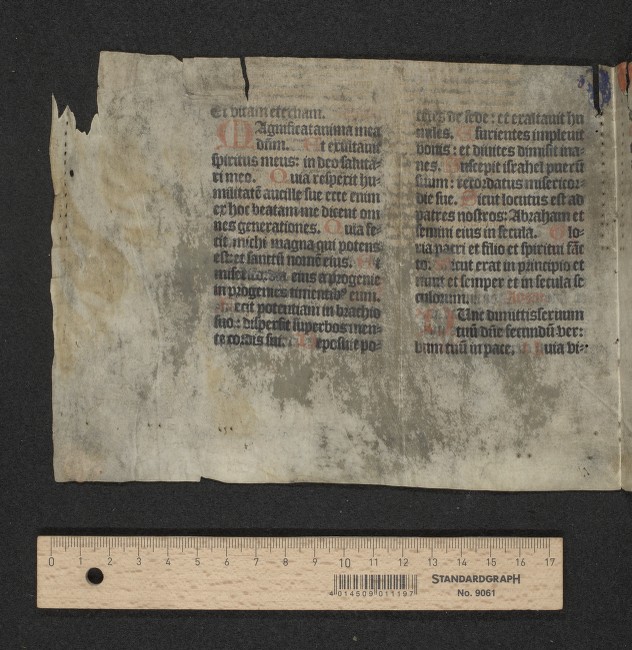 Et vitam eternam.
MAgnificat anima mea
dñm. Et exultauit
spiritus meus: in deo saluta-
ri meo. Quia respexit hu-
militatē ancille sue ecce enim
ex hoc beatam me dicent om
nes generationes. Quia fe-
cit michi magna qui potens
est: et sanctū nomē eius. Et
misericordia eius a progenie
in progenies timentibꝰ eum.
Fecit potentiam in brachio
suo: dispersit superbos men-
te cordis sui. Deposuit po-
tētes de sede: et exaltauit hu
miles. Esurientes impleuit
bonis: et diuites dimisit ina-
nes. Suscepit israhel puerū
suum: recordatus misericor-
die sue. Sicut locutus est ad
patres nostros: Abraham et
semini eius in secula. Glo-
ria patri et filio et spiritui sāc
to. Sicut erat in principio et
nunc et semper et in secula se
culorum.
NUnc dimittis seruum
tuū dñe secundū ver:
bum tuū in pace. Quia vi-
0 1 2 3 4 5 6 7 8 9 10 11 12 13 14 15 16 17
4 014509 011197
STANDARDGRAPH
No. 9061